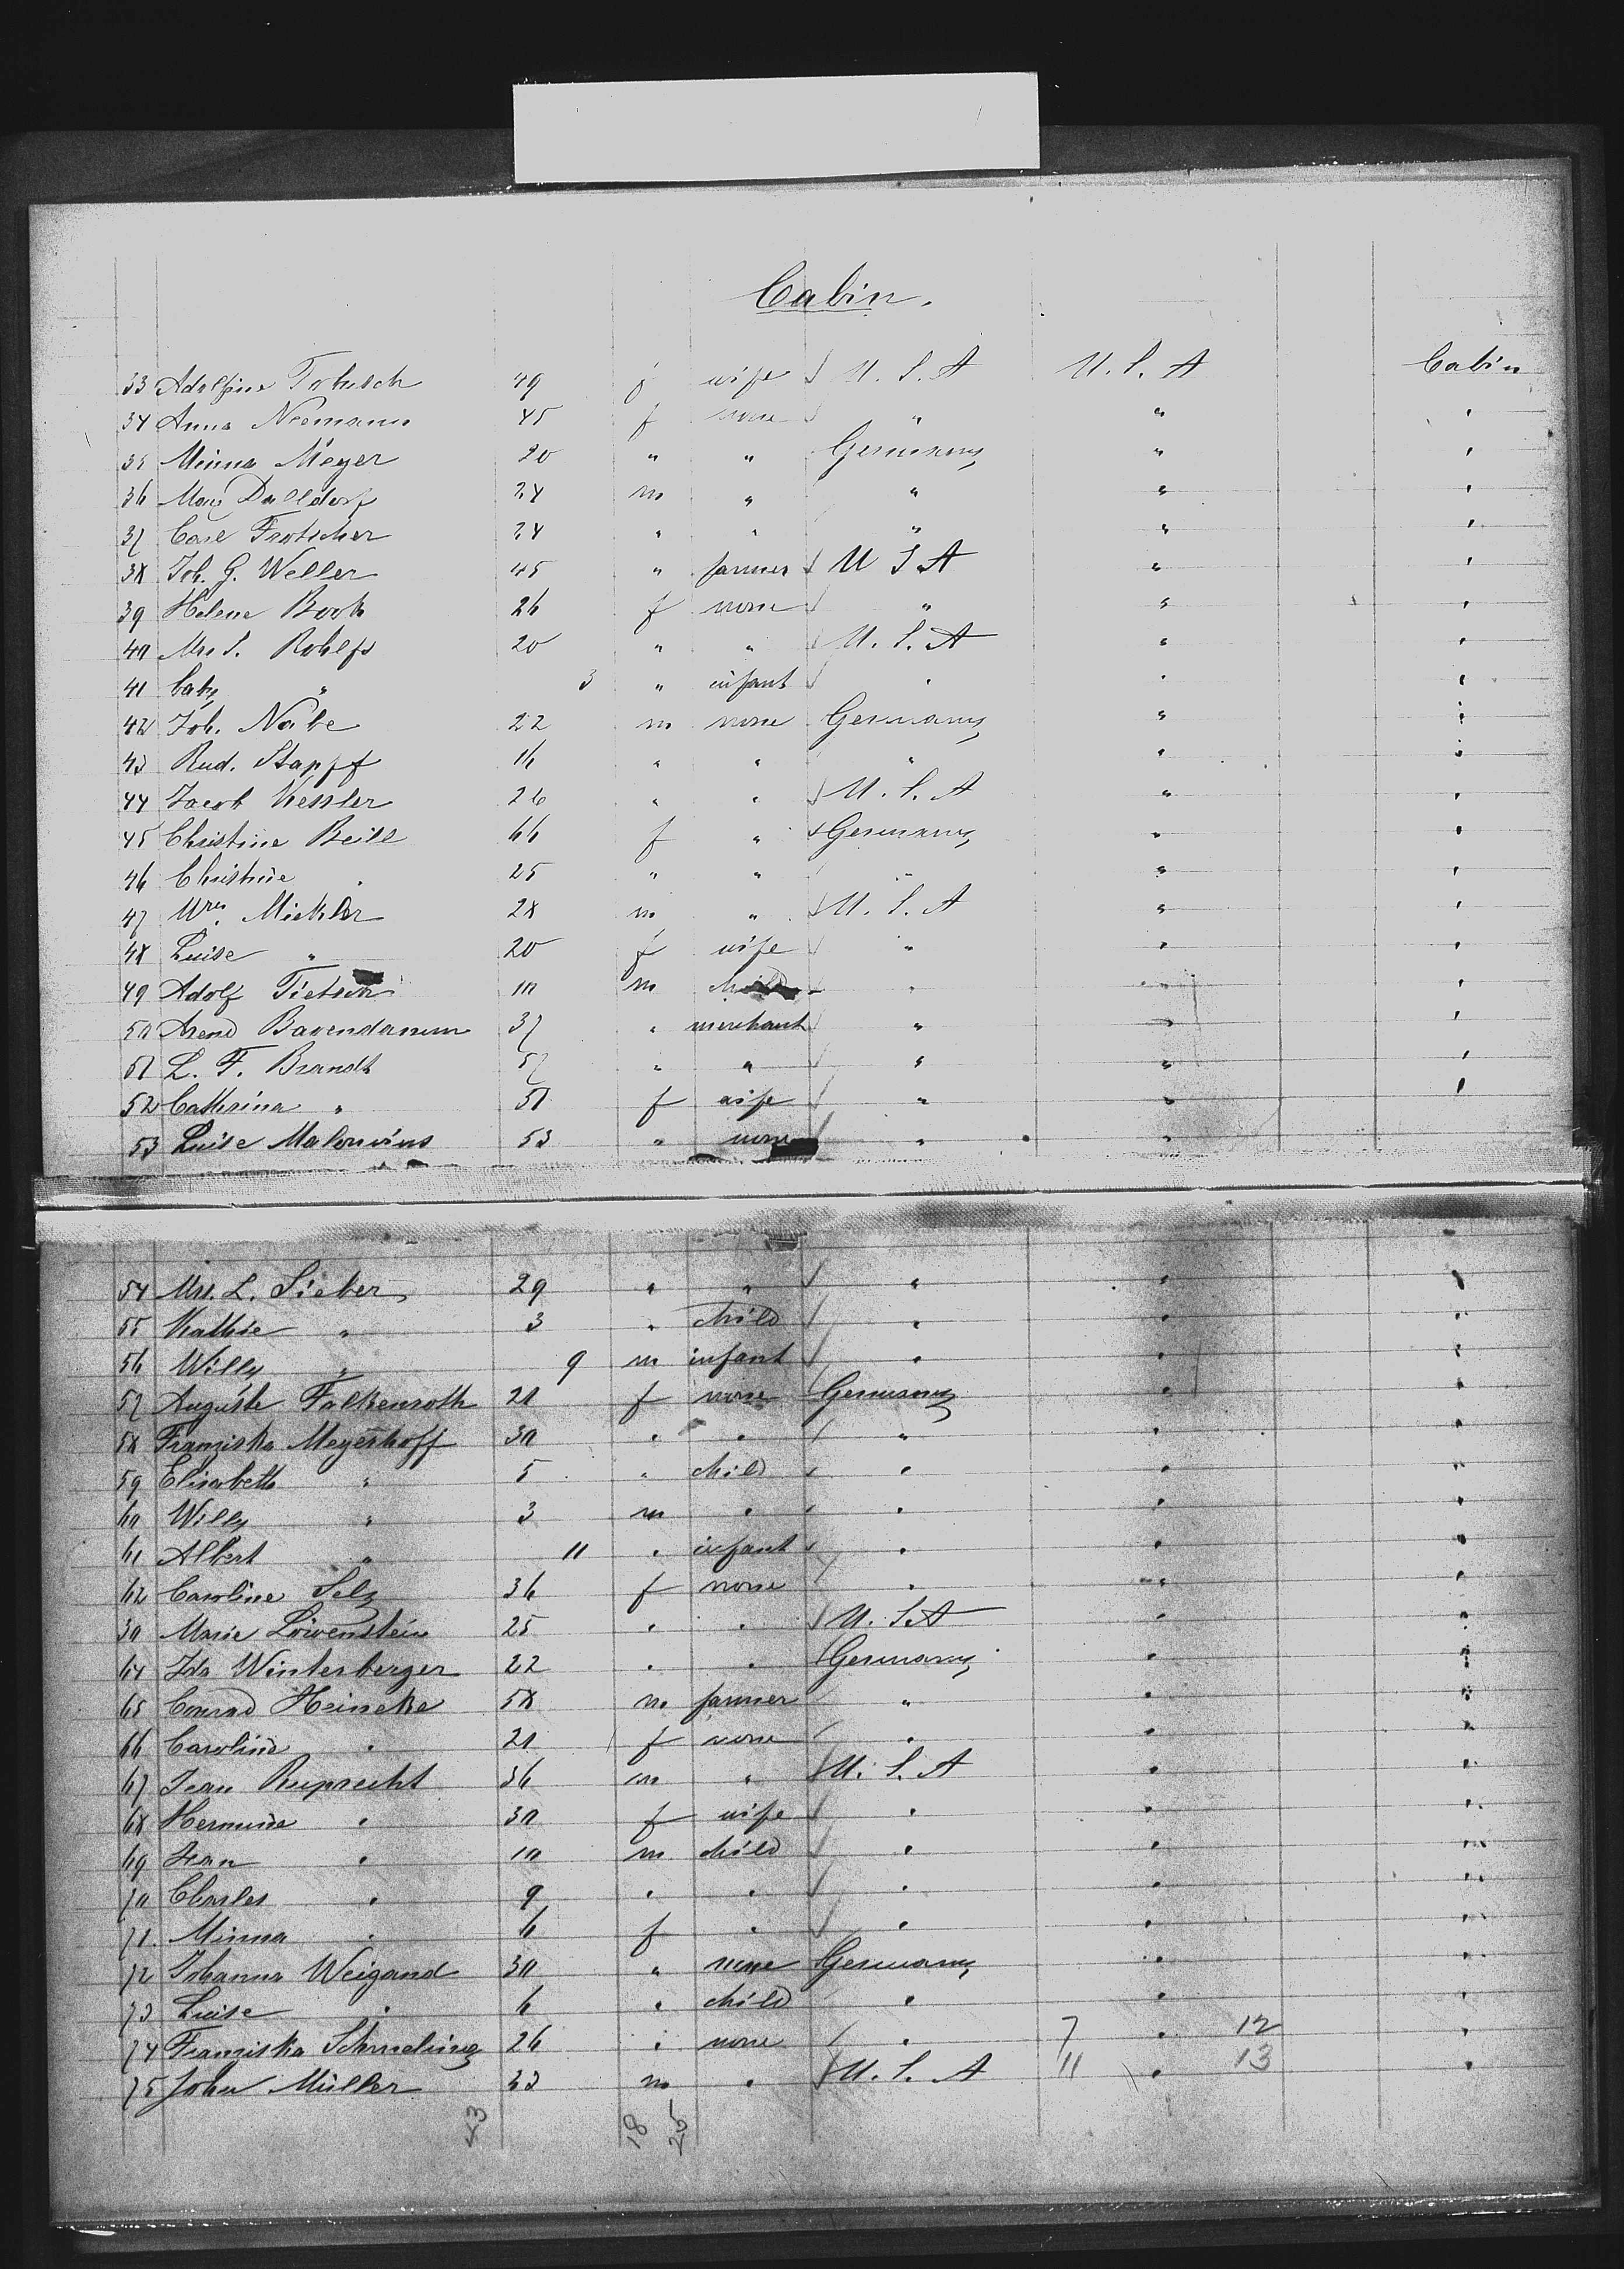 Cabin.
33 Adolfine Tobisch 49 f wife U. S. A U. S. A Cabin
34 Anna Neemann 45 f none " " "
35 Minna Meyer 20 " " Germany " "
36 Max Dalldorf 24 m " " " "
37 Carl Frotscher 24 " " " " "
38 Joh. G. Weller 45 " farmer U S A " "
39 Helene Bock 26 f none " " "
40 Mrs S. Rohlfs 20 " " U. S. A " "
41 baby " 3 " infant " " "
42 Joh. Nabe 22 m none Germany " "
43 Rud. Stapff 16 " " " " "
44 Jacob Kessler 26 " " U. S. A " "
45 Christine Beill 66 f " Germany " "
46 Christine " 25 " " " " "
47 Wm. Mickler 28 m " U. S. A " "
48 Luise " 20 f wife " " "
49 Adolf Tietsch 10 m child " " "
50 Arend Bavendamm 37 " merchant " " "
51 L. F. Brandt 57 " " " " "
52 Cathrina " 51 f wife " " "
53 Luise Malouvins 53 " none " "
54 Mrs. L. Sieber 29 " " " " "
55 Kathie " 3 " child " " "
56 Willy " 9 m infant " " "
57 Auguste Falkenroth 21 f none Germany " "
58 Franziska Meyerhoff 30 " " " " "
59 Elisabeth " 5 " child " " "
60 Willy " 3 m " " " "
61 Albert " 11 " infant " " "
62 Caroline Selz 36 f none " " "
30 Marie Löwenstein 25 " " U. S. A " "
64 Ida Winterberger 22 " " Germany " "
65 Conrad Heineke 58 m farmer " " "
66 Caroline " 21 f none " " "
67 Jean Ruprecht 36 m " U. S. A " "
68 Hermine " 30 f wife " " "
69 Jean " 10 m child " " "
70 Charles " 9 " " " " "
71. Minna " 6 f " " " "
72 Johanna Weigand 30 " none Germany " "
73 Luise " 6 " child " " "
74 Franziska Schmeling 26 " none " 7 " 12 "
75 John Müller 33 m " U. S. A 11 " 13 "
43 18 25